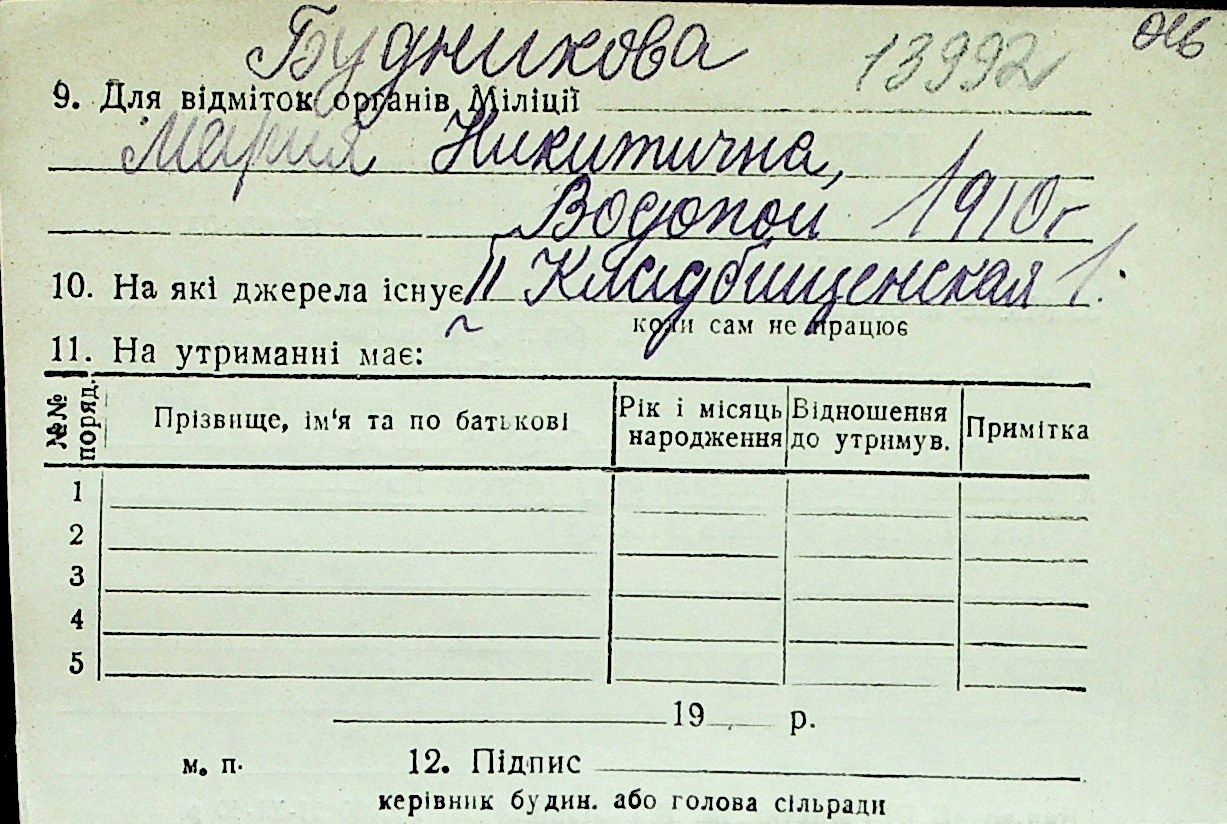 Будникова 13992
9. Для відміток органів Міліції
Мария Никитична,
Водопой 1910г
10. На які джерела існує II Кладбищенская 1.
коли сам не працює
11. На утриманні має:
№№ поряд. Прізвище, ім'я та по батькові Рік і місяць народження Відношення до утримув. Примітка
1
2
3
4
5
19 р.
м. п. 12. Підпис
керівник будин. або голова сільради